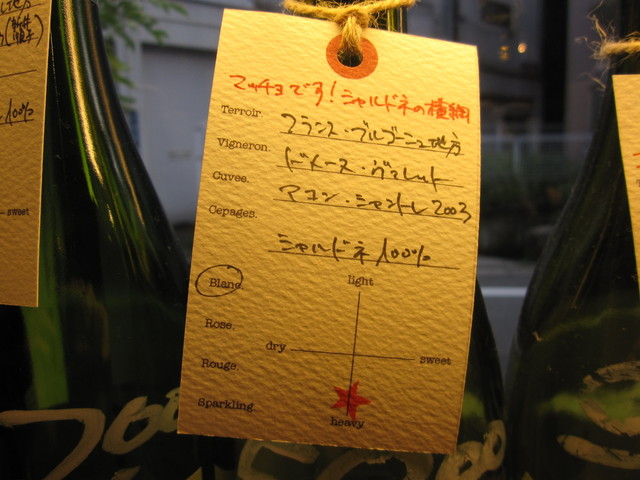 マッチョです!シャルドネの横綱
Terroir. フランス・ブルゴーニュ地方
Vigneron. ドメーヌ・ヴァレット
Cuvee. マコン・シャントレ2003
Cepages. シャルドネ100%
Blanc.
light
Rose.
dry
sweet
Rouge.
Sparkling.
heavy
100%
sweet